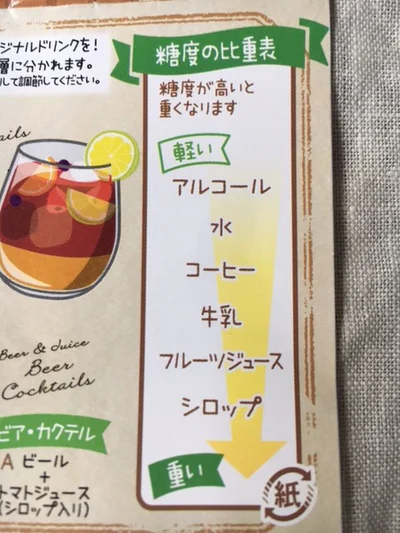 ジナルドリンクを!
層に分かれます。
して調節してください。
ails
Beer & Juice
Beer
Cocktails
ビア・カクテル
A ビール
+
トマトジュース
(シロップ入り)
糖度の比重表
糖度が高いと
重くなります
軽い
アルコール
水
コーヒー
牛乳
フルーツジュース
シロップ
重い
紙